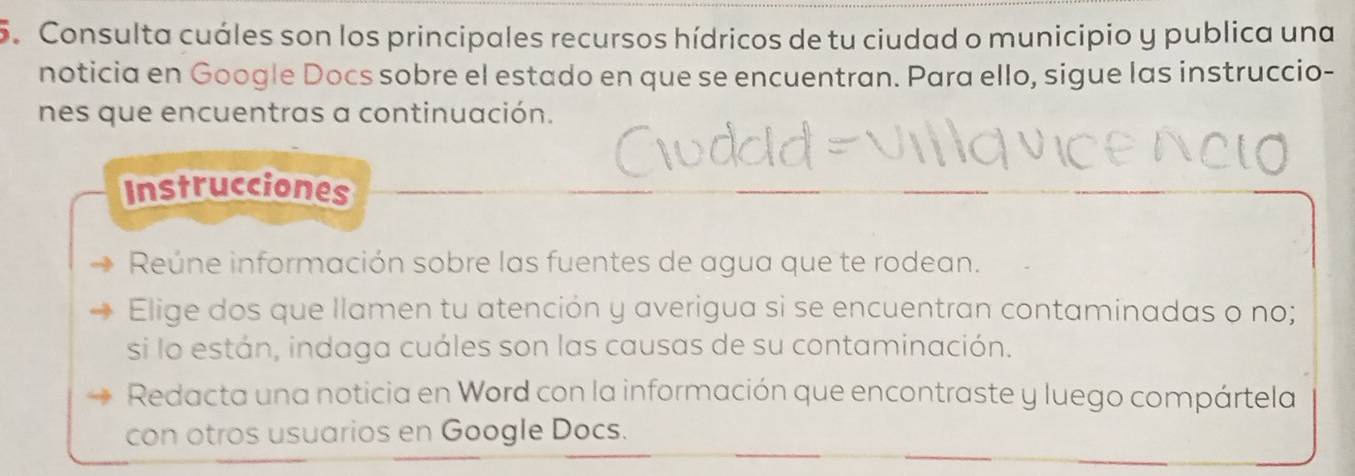 5. Consulta cuáles son los principales recursos hídricos de tu ciudad o municipio y publica una
noticia en Google Docs sobre el estado en que se encuentran. Para ello, sigue las instruccio-
nes que encuentras a continuación.
Ciudad = Villavicencio
Instrucciones
→ Reúne información sobre las fuentes de agua que te rodean.
→ Elige dos que llamen tu atención y averigua si se encuentran contaminadas o no;
si lo están, indaga cuáles son las causas de su contaminación.
→ Redacta una noticia en Word con la información que encontraste y luego compártela
con otros usuarios en Google Docs.